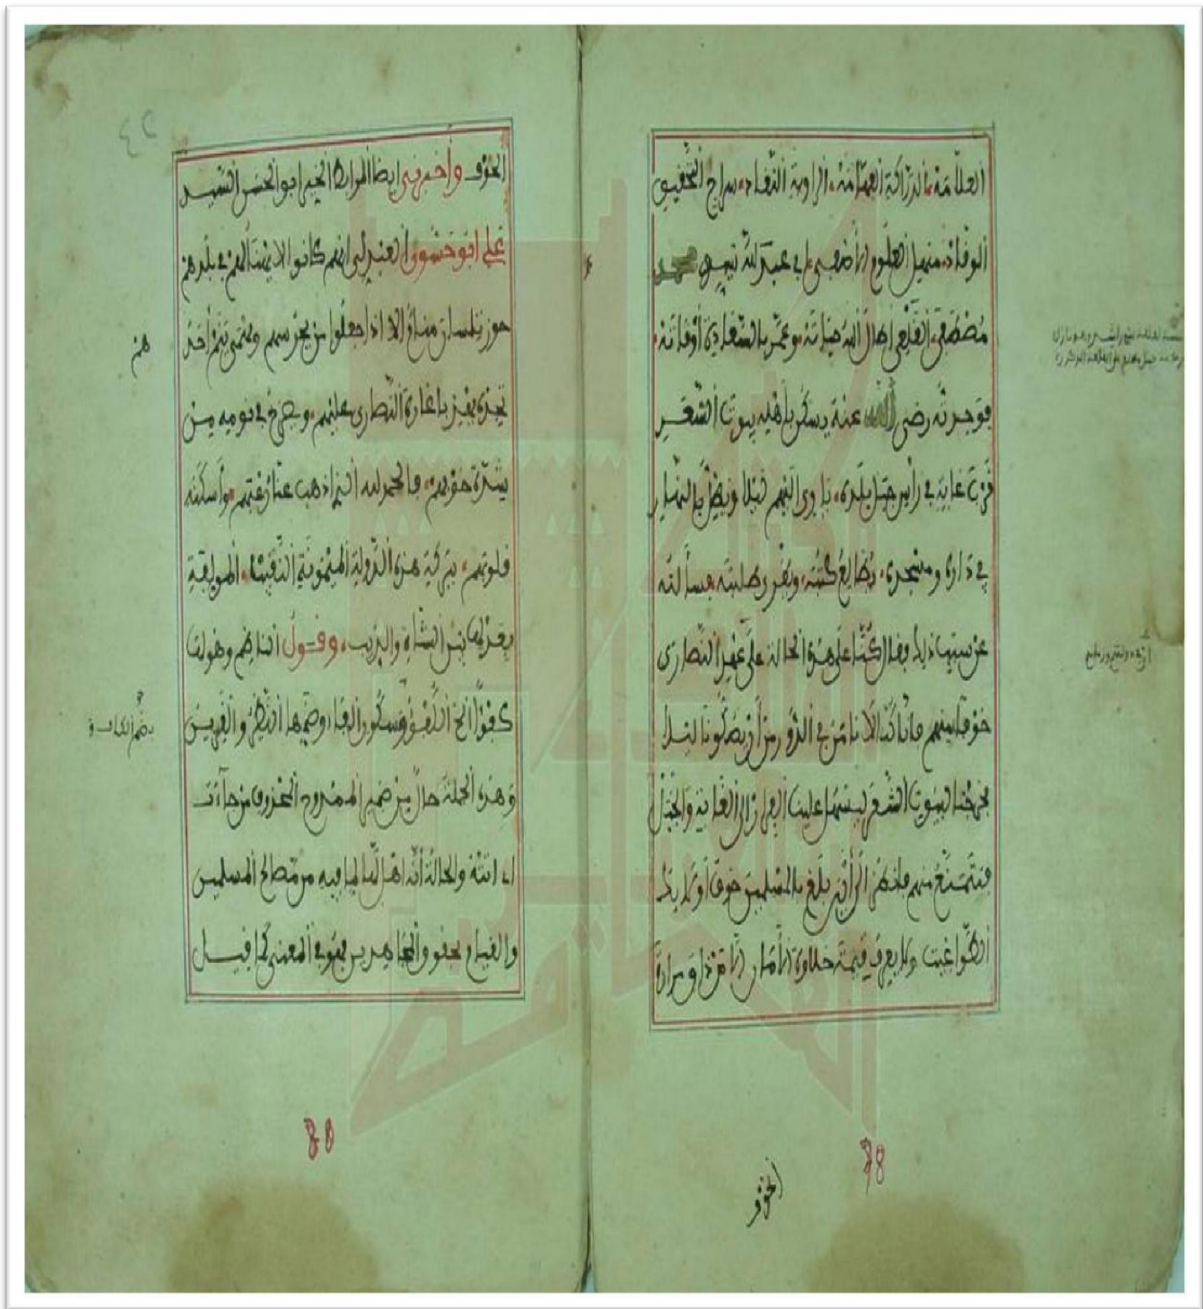 العلّامة، الدرّاكة الفهّامة، الراوية النقّاد، سراج التحقيق
الوقّاد، منهل العلوم الأصفى، أبي عبد الله سيدي محمد
مصطفى القلعي أطال الله حياته، وعمّر بالسعادة أوقاته،
فوجدته رضي الله عنه يسكن بأهله بيوت الشعر
قرب غابة في رأس جبل بلده، ياوي إليهم ليلا ويظل بالنهار
في داره ومسجده، يطالع كتبه، ويقرئ طلبته، فسألته
عن سبب ذلك فقال كنا على هذه الحالة على عهد النصارى
خوفا منهم فإنا كنا لا نامن في الدور من أن يصلونا ليلا
فخرجنا لبيوت الشعر ليسهل علينا الفرار إلى الغابة والجبل
فنتمنع منهم فانظر إلى أين بلغ بالمسلمين خوف أولايك
الطواغيت ولا يعرف قيمة حلاوة الأمان إلا من ذاق مرارة
الخوف
الخوف وأخبرني أيضا المرابط الخير أبو الحسن السيد
علي أبو حشون العبدلي أنهم كانوا لا يهنأ لهم في بلدهم
حوز تلمسان منام إلا إذا جعلوا من يحرسهم ومتى نام أحد
تجده يهذي بإغارة النصارى عليهم، ويصرخ في نومه من
شدة خوفهم، فالحمد لله الذي أذهب عنا رعبهم، وأسكنه
قلوبهم، ببركة هذه الدولة الميمونة النقيبة، المولفة
بعدلها بين الشاة والذيب، وقول الناظم وهو لها
كفؤا الخ الكفؤ بسكون الفاء وضمها النظير والقرين
وهذه الجملة حال من ضمير الممدوح المحذوف من جاءت
أي أتته والحالة أنه أهل لها لما فيه من مصالح المسلمين
والقيام بحقوق المجاهدين فهو في المعنى كما قيل
هم
بضم الكاف
88